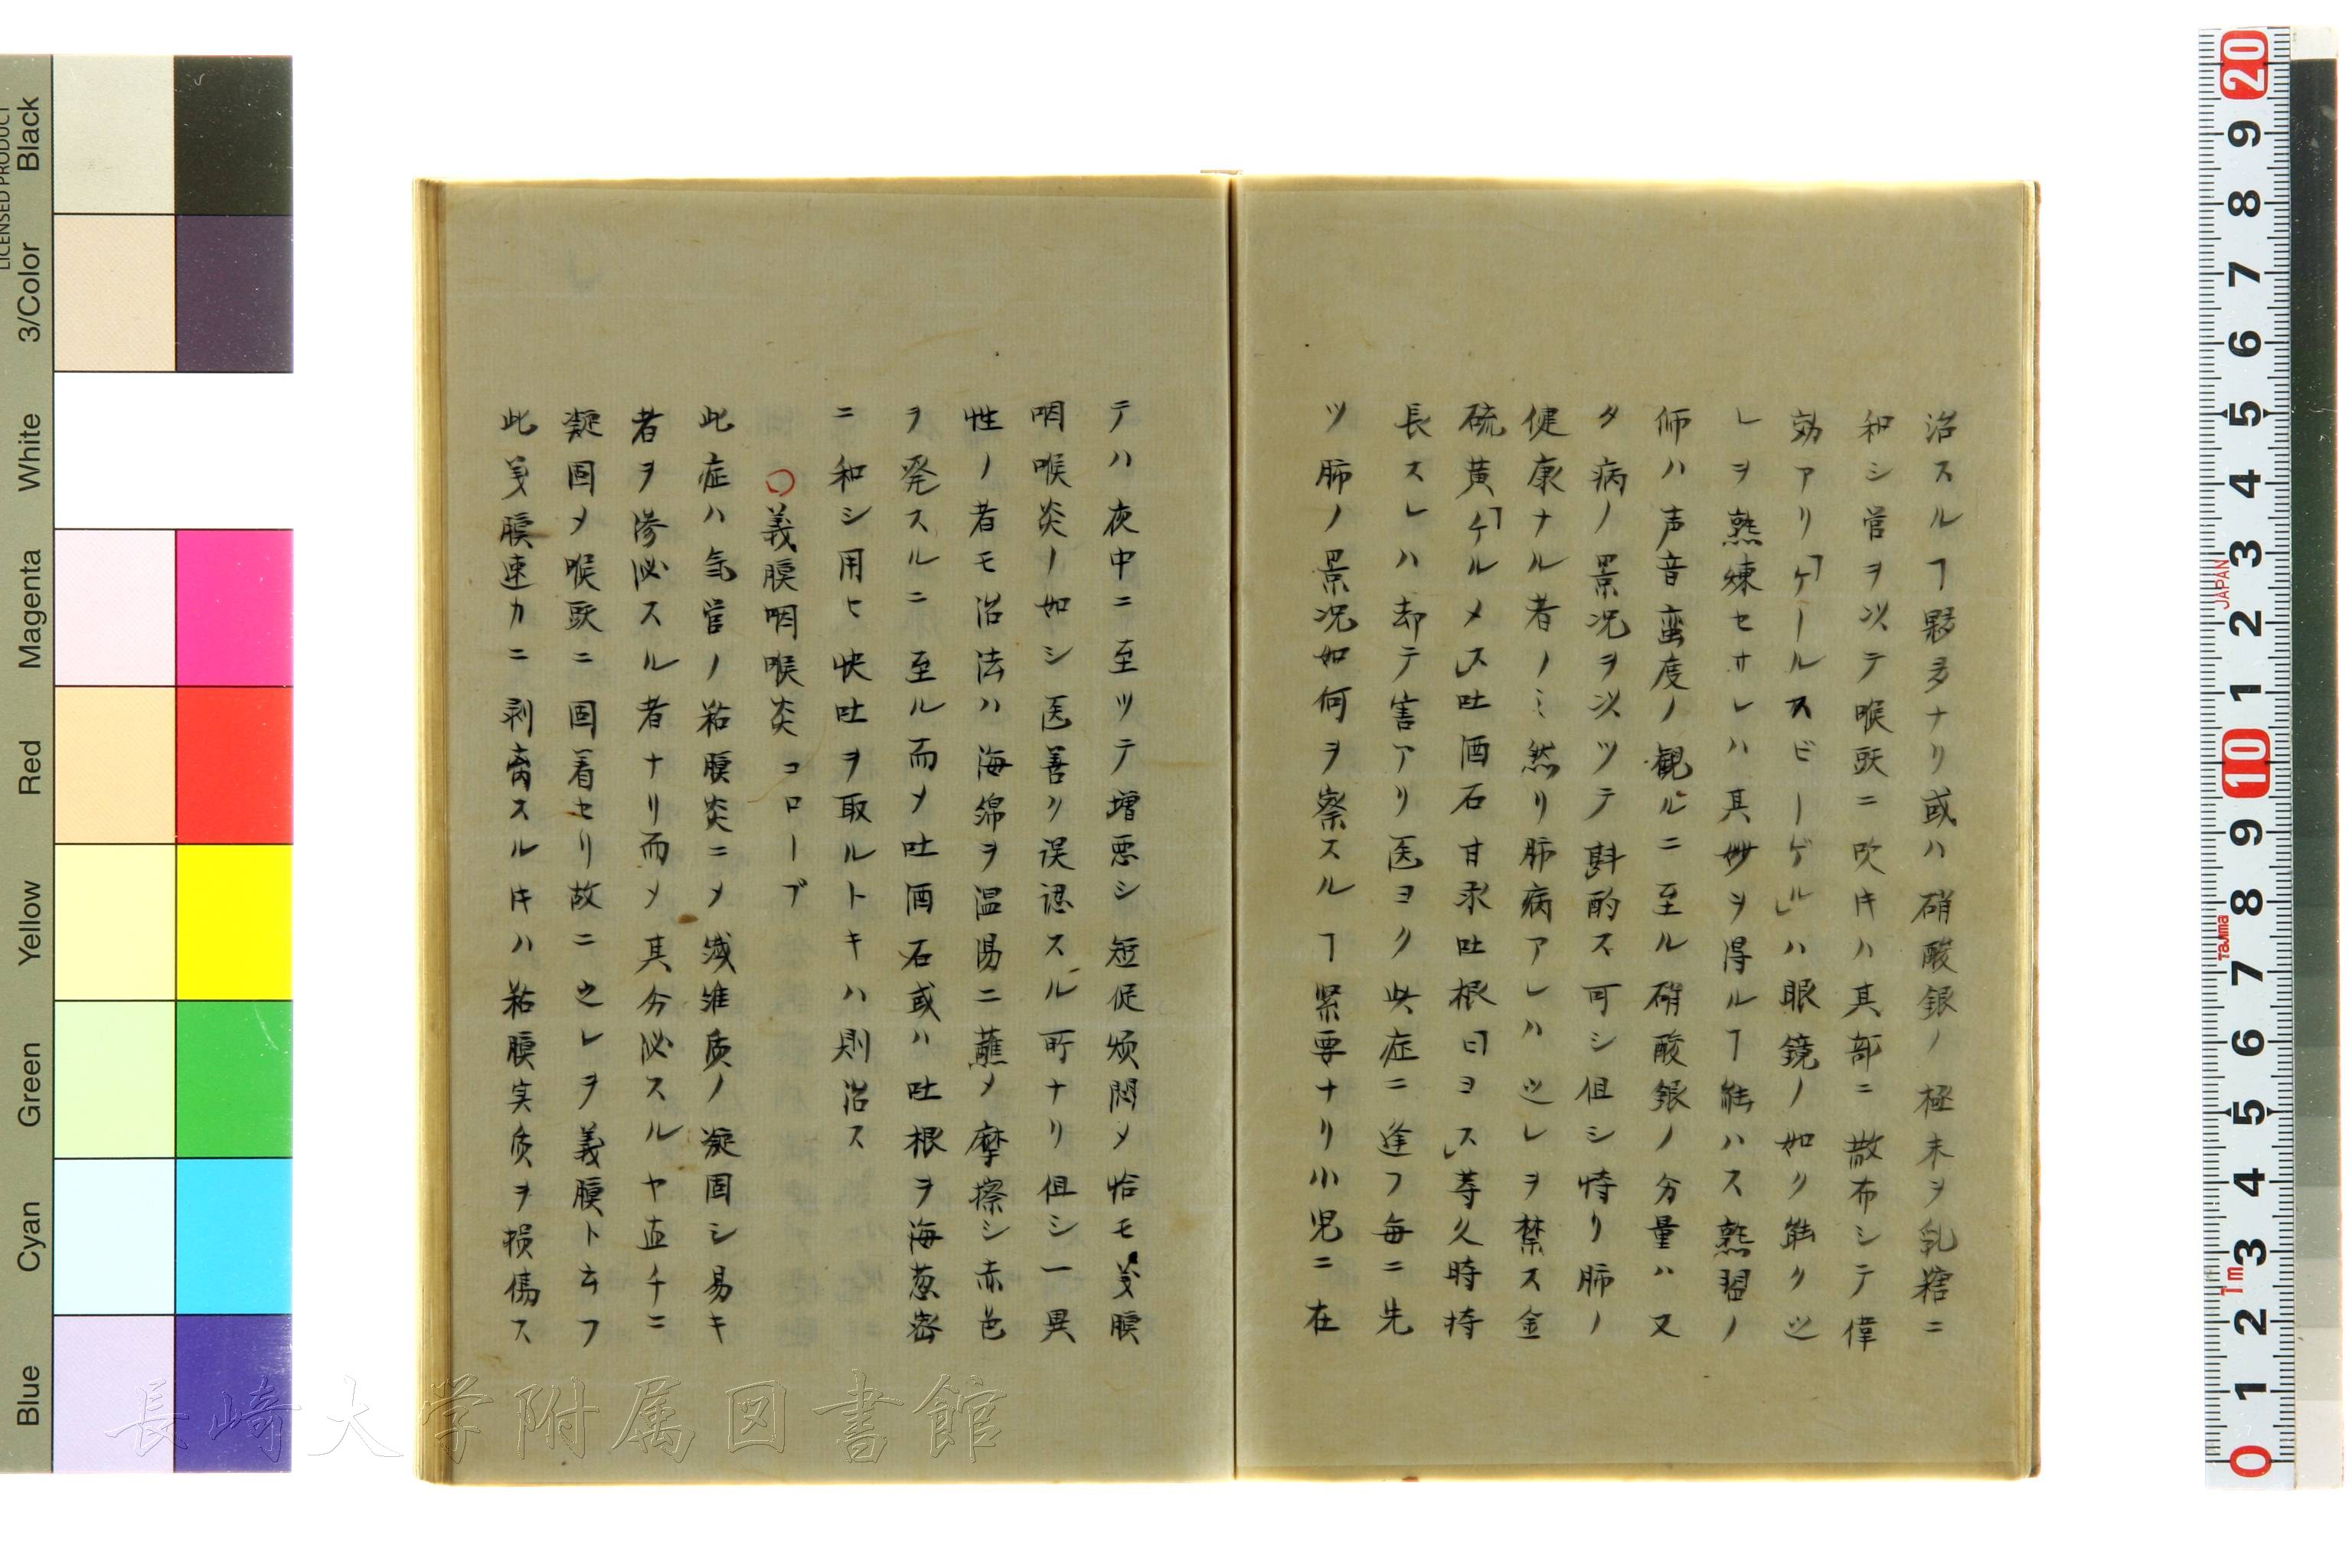 治スルヿ夥多ナリ或ハ硝酸銀ノ極末ヲ乳糖ニ
和シ管ヲ以テ喉頭ニ吹キハ其部ニ散布シテ偉
効アリ「ケールスピーゲル」ハ眼鏡ノ如ク能ク之
レヲ熟練セサレハ其妙ヲ得ルヿ能ハス熟習ノ
師ハ声音蛮度ノ観ルニ至ル硝酸銀ノ分量ハ又
タ病ノ景况ヲ以ツテ斟酌ス可シ但シ恃リ肺ノ
健康ナル者ノミ然リ肺病アレハ之レヲ禁ス金
硫黄「ケルメス」吐酒石甘汞吐根「ヒヨス」等久時持
長スレハ却テ害アリ医ヨク此症ニ逢フ毎ニ先
ツ肺ノ景况如何ヲ察スルヿ緊要ナリ小児ニ在
テハ夜中ニ至ツテ増悪シ短促煩悶メ恰モ義膜
咽喉炎ノ如シ医善ク误認スル所ナリ但シ一異
性ノ者モ治法ハ海綿ヲ温湯ニ蘸メ摩擦シ赤色
ヲ発スルニ至ル而メ吐酒石或ハ吐根ヲ海葱密
ニ和シ用ヒ快吐ヲ取ルトキハ則治ス
○義膜咽喉炎コローブ
此症ハ気管ノ粘膜炎ニメ繊維质ノ凝固シ易キ
者ヲ滲泌スル者ナリ而メ其分泌スルヤ直チニ
凝固メ喉頭ニ固着セリ故ニ之レヲ義膜ト云フ
此義膜速カニ剥离スルキハ粘膜実质ヲ損傷ス
長崎大学附属図書館
LICENSED PRODUCT
Black
3/Color
White
Magenta
Red
Yellow
Green
Cyan
Blue
20
9
8
7
6
5
4
3
2
1
10
9
8
7
6
5
4
3
2
1
0
JAPAN
Tajima